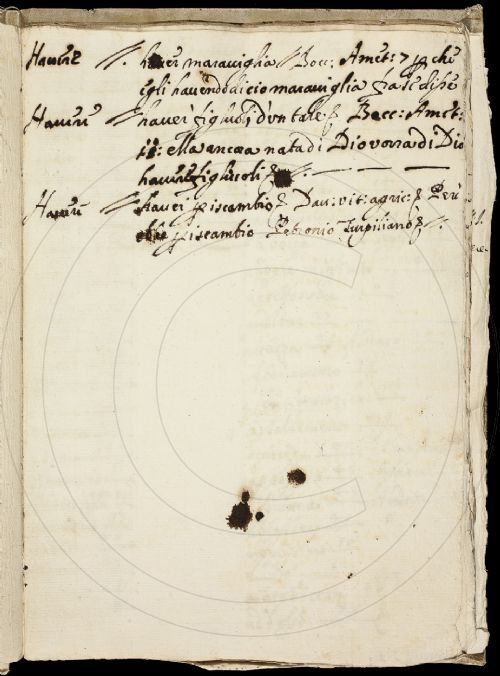 Havere //. haver maraviglia // Bocc: Amet: 7 p che
egli havendo di cio maraviglia fra se disse
Havere // haver figliuoli d'un tale Bocc: Amet:
ella ancora nata di Dio
havere figliuoli
Havere // haver p iscambio Dav: vit: agric: Per
p iscambio Petronio Turpiliano //.